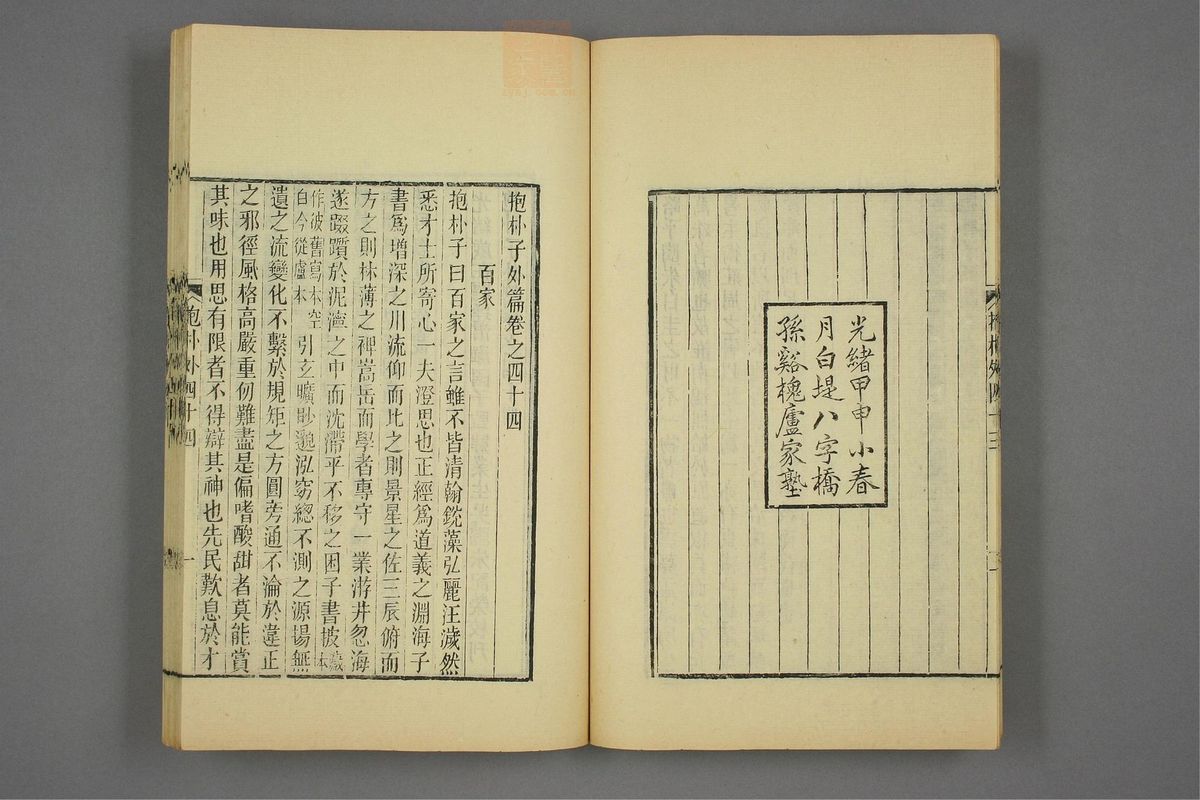 光緒甲申小春
月白堤八字橋
孫谿槐廬家塾
抱朴外四十三
抱朴子外篇卷之四十四
百家
抱朴子曰百家之言雖不皆清翰銳藻弘麗汪濊然
悉才士所寄心一夫澄思也正經爲道義之淵海子
書爲增深之川流仰而比之則景星之佐三辰俯而
方之則林薄之裨嵩岳而學者專守一業游井忽海
遂躓於泥濘之中而沈滯乎不移之困子書披藏本
作彼舊寫本空白今從盧本引玄曠眇邈泓窈總不測之源揚無
遺之流變化不繫於規矩之方圓旁通不淪於違正
之邪徑風格高嚴重仞難盡是偏嗜酸甜者莫能賞
其味也用思有限者不得辯其神也先民歎息於才
抱朴外四十四
一